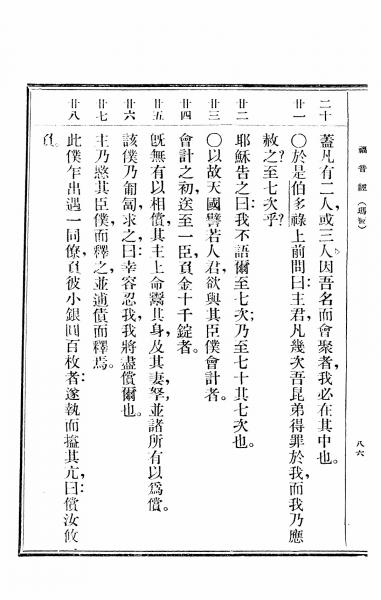 福音經（瑪竇）
八六
二十 蓋凡有二人，或三人因吾名而會聚者，我必在其中也。
廿一 ○於是伯多祿上前問曰：主君凡幾次吾昆弟得罪於我，而我乃應
赦之？至七次乎？
廿二 耶穌告之曰：我不語爾至七次；乃至七十其七次也。
廿三 ○以故天國譬若人君，欲與其臣僕會計者。
廿四 會計之初，送至一臣，負金十千錠者。
廿五 旣無有以相償，其主上命鬻其身，及其妻孥，並諸所有以爲償。
廿六 該僕乃匍匐，求之曰：幸容忍我，我將盡償爾也。
廿七 主乃愍其臣僕而釋之，並逋債而釋焉。
廿八 此僕乍出，遇一同僚，負彼小銀圓百枚者：遂執而搤其亢，曰：償汝攸
負。